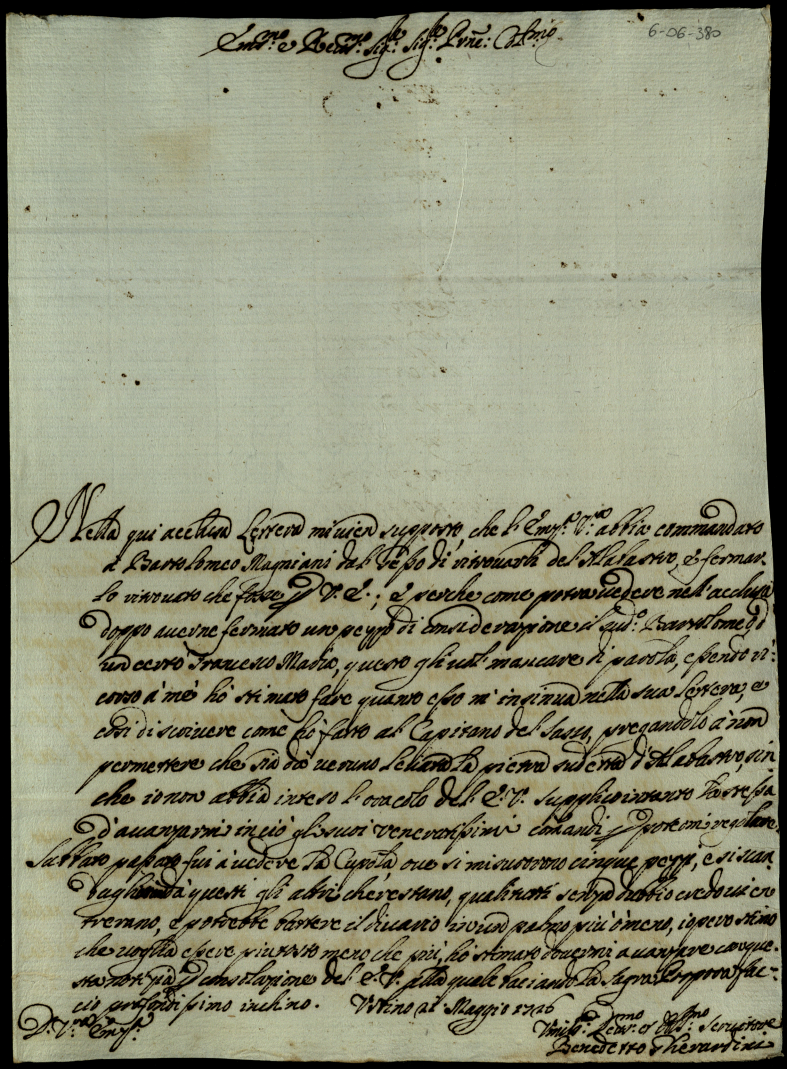 6-06-380
Em.mo e Rev.mo Sig.re Sig.re Prone: Col.mo
Nella qui acclusa Lettera mi vien supposto, che l'Em.za V.ra abbia commandato
à Bartolomeo Magniani dal Sasso di ritrovarli del Alabastro, e fermar-
lo ritrovato che fosse p V. E.; e perche come potrà vedere nell'acclusa
doppo averne fermato un pezzo di considerazione il sud.o Bartolomeo dà
un certo Francesco Maria, questo gli vol mancare di parola, essendo ri-
corso à mè hò stimato fare quanto esso m'insinua nella sua Lettera, e
così di scrivere come hò fatto al Capitano del Sasso, pregandolo à non
permettere che sia dà veruno levata la pietra sudetta d'Alabastro, sin
che io non abbia inteso l'oracolo dell'E. V. supplico intanto la stessa
d'avanzarmi in ciò gli suoi veneratissimi comandi p potermi regolare.
Sabbato passato fui à vedere la Cupola ove si misurorono cinque pezzi, e si scan-
dagliando à questi gli altri che restano, quali tutti senza dubbio credo vi en-
treranno, e potrebbe battere il divario in un palmo più ò meno, io però stimo
che voglia essere più tosto meno che più, hò stimato dovermi avanzare con que-
sta notizia p consolazione del E. V. alla quale baciando la Sagra Porpora fac-
cio profondissimo inchino. Urbino 21 Maggio 1726
D. V.ra Em.za
Umil.mo Dev.mo et Obl.mo Servitore
Benedetto Gherardini